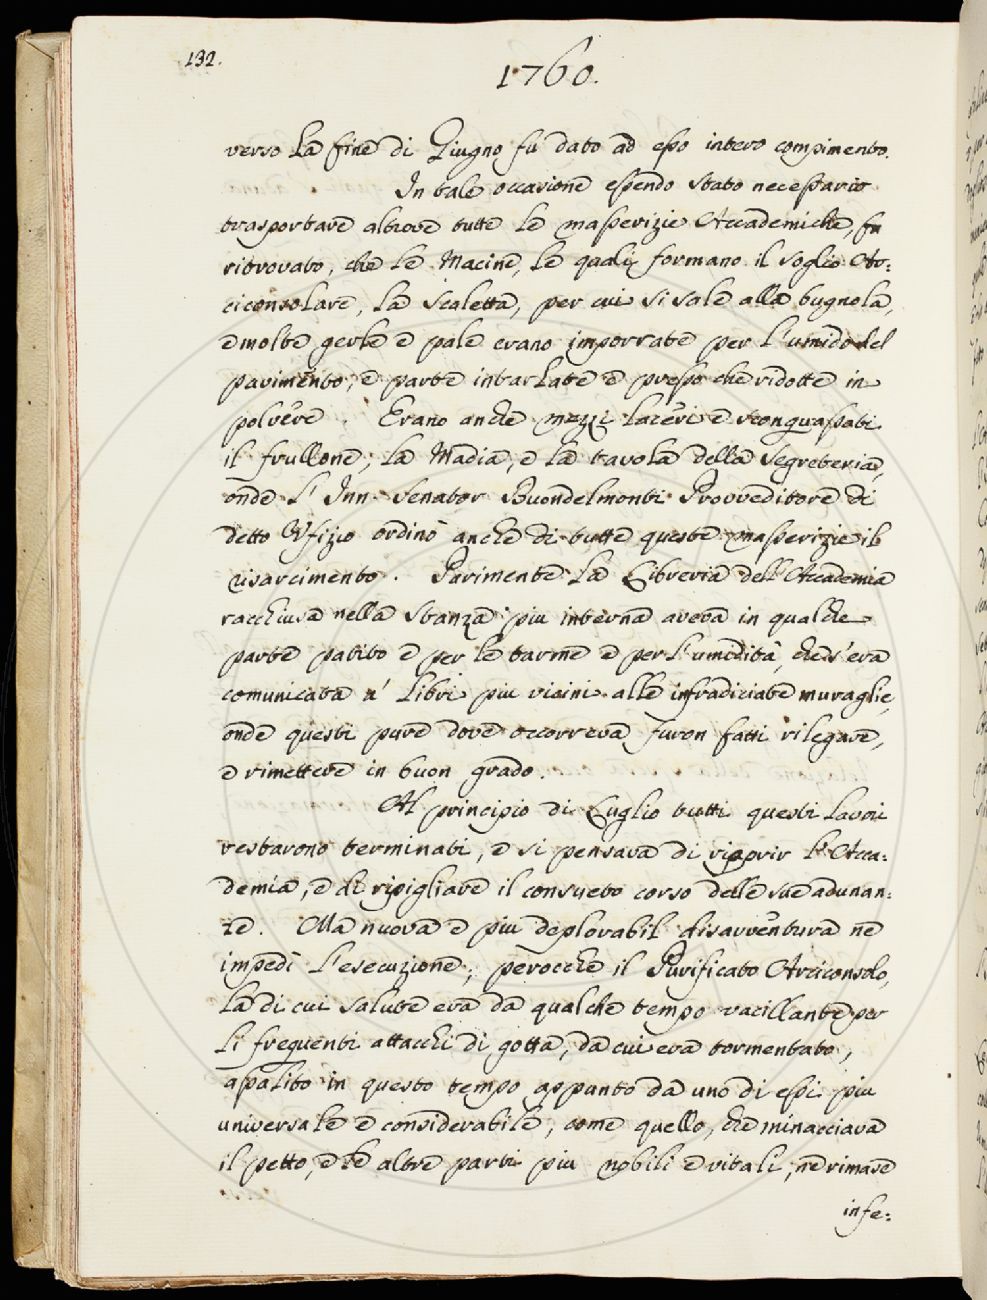 132.
1760.
verso la fine di Giugno fu dato ad esso intero compimento.
In tale occasione essendo stato necessario
trasportare altrove tutte le masserizie Accademiche, fu
ritrovato, che le Macine, le quali formano il soglio Ar=
ciconsolare, la scaletta, per cui si sale alla bugnola,
e molte gerle e pale erano imporrate per l'umido del
pavimento, e parte intarlate e presso che ridotte in
polvere. Erano anche mezzi laceri e sconquassati
il frullone, la Madia, e la tavola della Segreteria,
onde l'Inn. Senator Buondelmonti Provveditore di
detto Ufizio ordinò anche di tutte queste masserizie il
risarcimento. Parimente la Libreria dell'Accademia
racchiusa nella stanza più interna aveva in qualche
parte patito e per le tarme e per l'umidità, che s'era
comunicata a' libri più vicini alle infradiciate muraglie,
onde questi pure dove occorreva furon fatti rilegare,
e rimettere in buon grado.
Al principio di Luglio tutti questi lavori
restarono terminati, e si pensava di riaprir l'Acca=
demia, e di ripigliare il consueto corso delle sue adunan=
ze. Ma nuova e più deplorabil disavventura ne
impedì l'esecuzione; perocchè il Purificato Arciconsolo,
la di cui salute era da qualche tempo vacillante per
li frequenti attacchi di gotta, da cui era tormentato,
assalito in questo tempo appunto da uno di essi più
universale e considerabile, come quello, che minacciava
il petto, e le altre parti più nobili e vitali, ne rimase
infe=